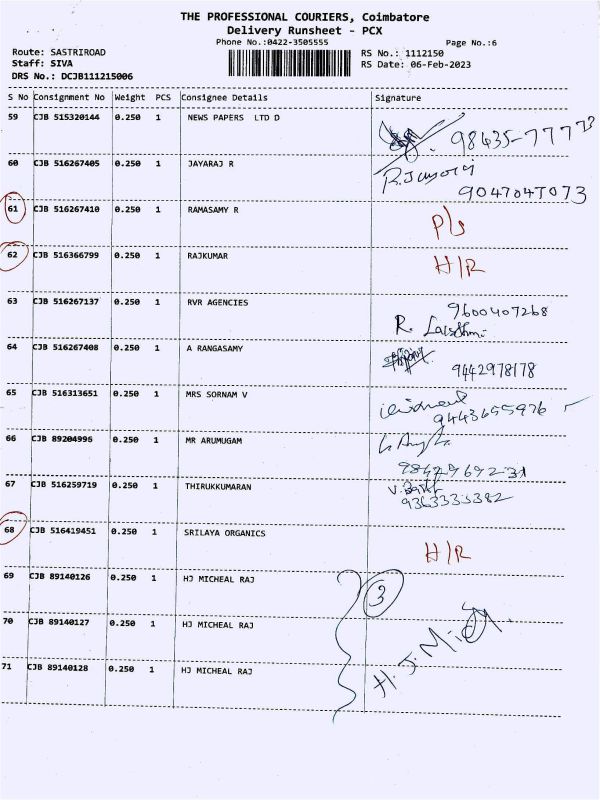 THE PROFESSIONAL COURIERS, Coimbatore
Delivery Runsheet - PCX
Phone No.:0422-3505555 Page No.:6
Route: SASTRIROAD RS No.: 1112150
Staff: SIVA RS Date: 06-Feb-2023
DRS No.: DCJB111215006
S No Consignment No Weight PCS Consignee Details Signature
59 CJB 515320144 0.250 1 NEWS PAPERS LTD D
98435-77773
60 CJB 516267405 0.250 1 JAYARAJ R
9047047073
61 CJB 516267410 0.250 1 RAMASAMY R
P/s
62 CJB 516366799 0.250 1 RAJKUMAR H/R
63 CJB 516267137 0.250 1 RVR AGENCIES 9600407268
R.
64 CJB 516267408 0.250 1 A RANGASAMY
9442978178
65 CJB 516313651 0.250 1 MRS SORNAM V
9443655976
66 CJB 89204996 0.250 1 MR ARUMUGAM
9842969231
67 CJB 516259719 0.250 1 THIRUKKUMARAN
9363333382
68 CJB 516419451 0.250 1 SRILAYA ORGANICS
H/R
69 CJB 89140126 0.250 1 HJ MICHEAL RAJ 3
70 CJB 89140127 0.250 1 HJ MICHEAL RAJ
71 CJB 89140128 0.250 1 HJ MICHEAL RAJ
H. J.